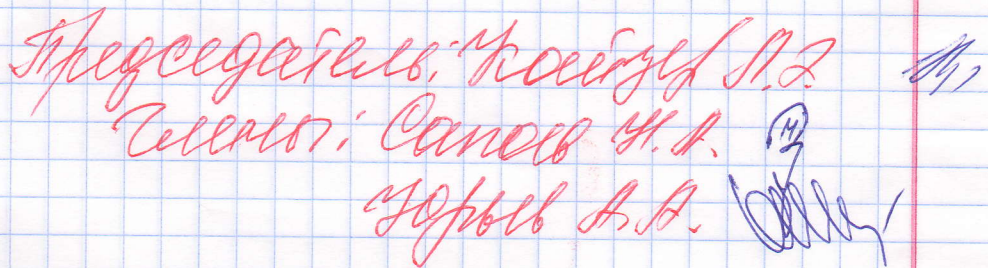 Председатель: Койтцер Л.Э.
Члены: Сапов Н.А.
Юрьев А.А.